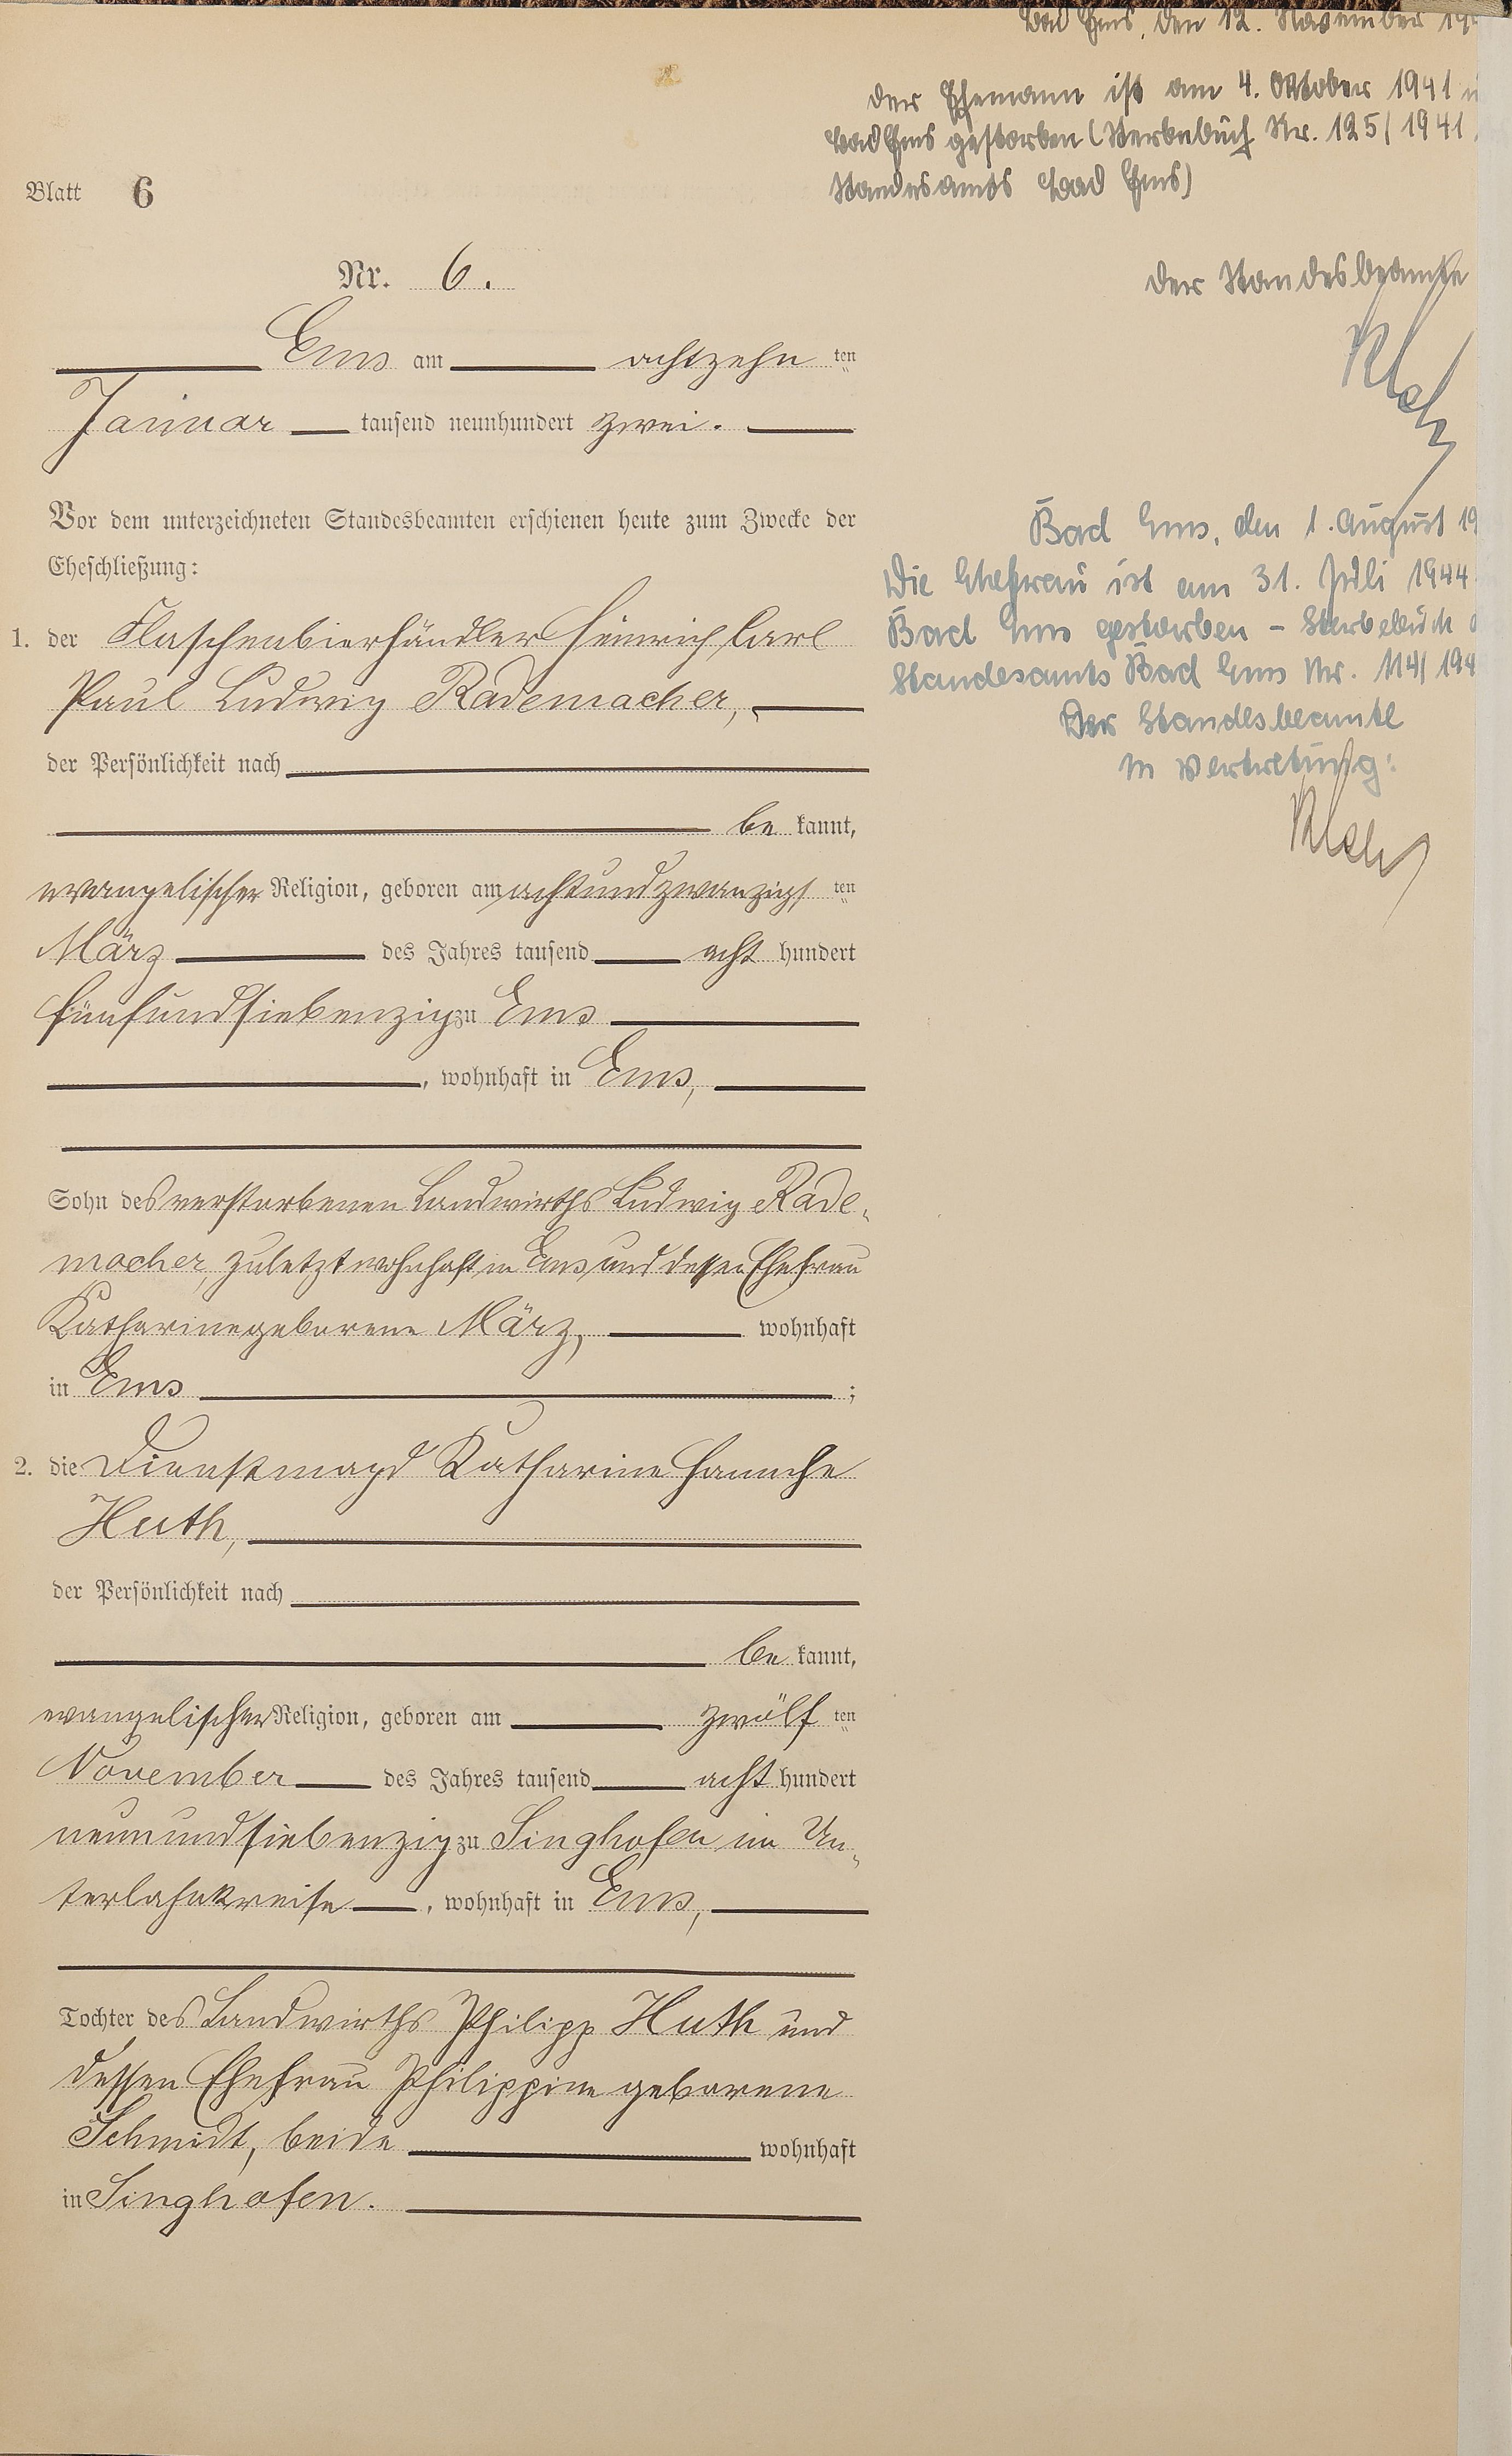 Bad Ems, den 12. November 19
Der Ehemann ist am 4. Oktober 1941
Bad Ems gestorben (Sterbebuch Nr. 125/1941
Standesamts Bad Ems)
Der Standesbeamte
Blatt 6
Nr. 6.
Ems am achtzehn ten
Januar tausend neunhundert zwei.
Vor dem unterzeichneten Standesbeamten erschienen heute zum Zwecke der
Eheschließung:
1. der Flaschenbierhändler Heinrich Carl
Paul Ludwig Rademacher,
der Persönlichkeit nach
be kannt,
evangelischer Religion, geboren am achtundzwanzigs ten
März des Jahres tausend acht hundert
fünfundsiebenzig zu Ems
, wohnhaft in Ems,
Sohn des verstorbenen Landwirths Ludwig Rade-
macher, zuletzt wohnhaft in Ems und dessen Ehefrau
Katharine geborene März, wohnhaft
in Ems ;
2. die Dienstmagd Katharine Hannche
Huth,
der Persönlichkeit nach
be kannt,
evangelischer Religion, geboren am zwölf ten
November des Jahres tausend acht hundert
neunundsiebenzig zu Singhofen im Un-
terlahnkreise , wohnhaft in Ems,
Tochter des Landwirths Philipp Huth und
dessen Ehefrau Philippine geborene
Schmidt, beide wohnhaft
in Singhofen.
Bad Ems, den 1. August 19
Die Ehefrau ist am 31. Juli 1944
Bad Ems gestorben – Sterbebuch d
Standesamts Bad Ems Nr. 114/194
Der Standesbeamte
In Vertretung: